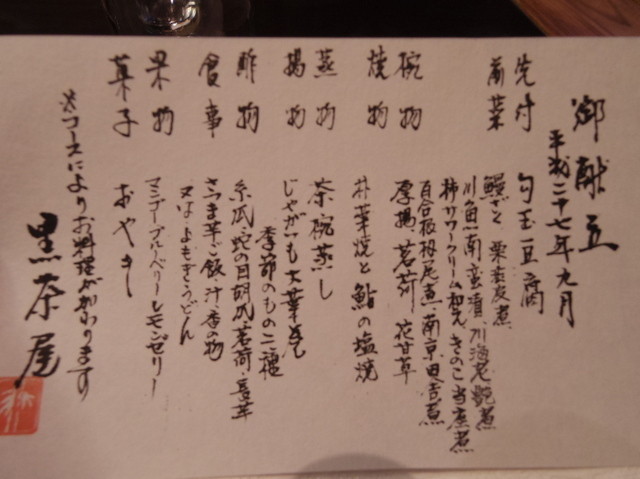 御献立
平成二十七年九月
先付 勾玉豆腐
前菜 鰻ざく 栗渋皮煮
川魚南蛮漬 川海老艶煮
柿サワークリーム和え きのこ当座煮
百合根 南京田舎煮
椀物 厚揚 茗荷 花甘草
焼物 朴葉焼と鮎の塩焼
蒸物 茶碗蒸し
揚物 じゃがいも大葉
季節のもの二種
酢物 糸瓜 蛇の目胡瓜 茗荷 長芋
食事 さつま芋ご飯 汁 香の物
又は よもぎうどん
果物 マンゴーブルーベリーレモンゼリー
菓子 おやき
※コースによりお料理がかわります
黒茶屋